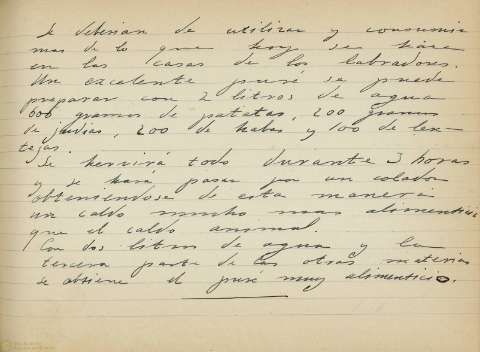 Se deberian de utilizar y consumir
mas de lo que hoy se hace
en las casas de los labradores.
Un excelente puré se puede
preparar con 2 litros de agua
600 gramos de patatas, 200 gramos
de judias, 200 de habas y 100 de len-
tejas.
Se hervirá todo durante 3 horas
y se hará pasar por un colador
obteniendose de esta manera
un caldo mucho mas alimenticio
que el caldo animal.
Con dos litros de agua y la
tercera parte de las otras materias
se obtiene el puré muy alimenticio.